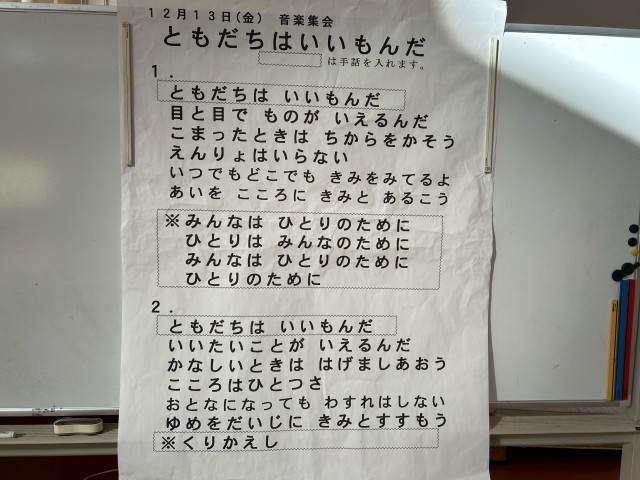 １２月１３日(金)　音楽集会
ともだちはいいもんだ
は手話を入れます。
１．
ともだちは いいもんだ
目と目で ものが いえるんだ
こまったときは ちからをかそう
えんりょはいらない
いつでもどこでも きみをみてるよ
あいを こころに きみと あるこう
※みんなは ひとりのために
ひとりは みんなのために
みんなは ひとりのために
ひとりのために
２．
ともだちは いいもんだ
いいたいことが いえるんだ
かなしいときは はげましあおう
こころはひとつさ
おとなになっても わすれはしない
ゆめをだいじに きみとすすもう
※くりかえし